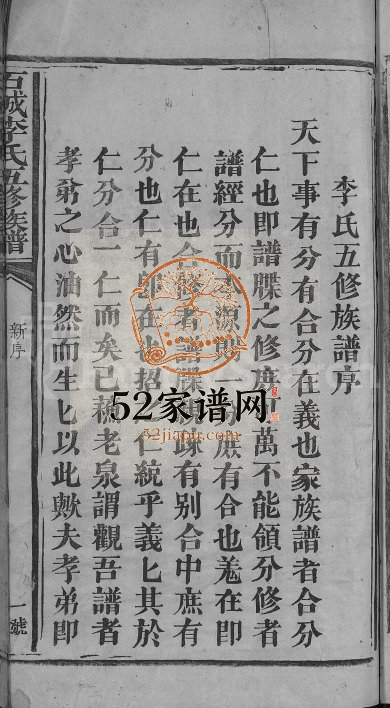 李氏五修族譜序
天下事有分有合分在義也家族譜者合分
仁也即譜牒之修庶萬不能領分修者
譜經分而源一庶有合也羗在即
仁在也合修者譜牒疎有别合中庶有
分也仁有即在也招仁統乎義匕其於
仁分合一仁而矣已蘓老泉謂觀吾譜者
孝弟之心油然而生匕以此歟夫孝弟即
石城李氏五修族譜
新序
一號
52家谱网
52jiapu.com